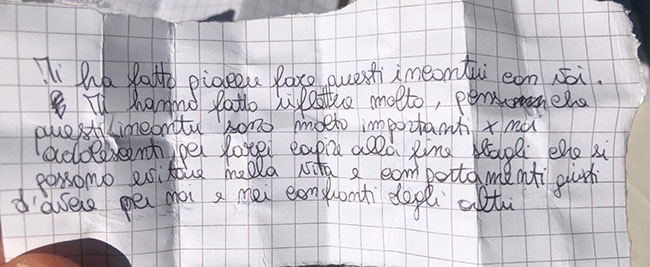 Mi ha fatto piacere fare questi incontri con voi.
Mi hanno fatto riflettere molto, penso che
questi incontri sono molto importanti x noi
adolescenti per farci capire alla fine sbagli che si
possono evitare nella vita e comportamenti giusti
d'avere per noi e nei confronti degli altri